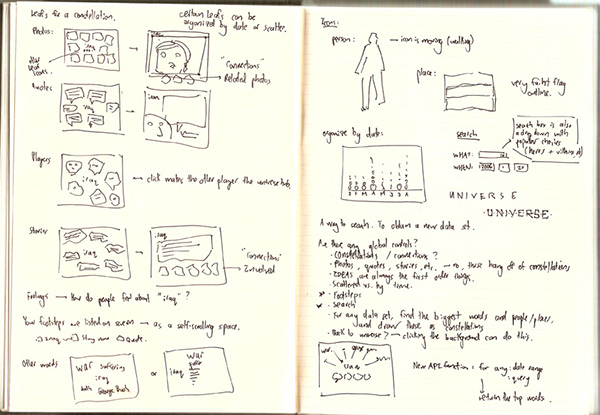 Leafs for a constellation.
certain leafs can be
organized by date or scatter.
Photos:
iraq
leaf
icons.
"connections"
Related photos
Quotes
iraq
iraq
Players
iraq
click makes the other player the universe
Stories
iraq
iraq
"connections"
Involved
Feelings → How do people feel about "iraq"?
Your footsteps are listed on screen → as a self-scrolling space.
iraq
quote.
Other words
war suffering
iraq
George Bush
or
war
iraq
Icons:
person:
icon is moving (walking)
place:
very faint flag
outline.
organize by date:
search
search box is also
a drop down with
popular choices
WHAT:
WHEN:
J F M A M J J A
UNIVERSE
UNIVERSE
A way to search. To obtain a new data set.
Are there any global controls?
· Constellations / connections?
· Photos, quotes, stories, etc. → no, these hang off of constellations
· IDEAS are always the first order range.
· Scattered vs. by time.
· Footsteps
· Search
· For any data set, find the biggest words and people/places,
and draw these as constellations
· Back to universe? → clicking the background can do this.
war
iraq
New API function: for any: date range
: query
return the top words.